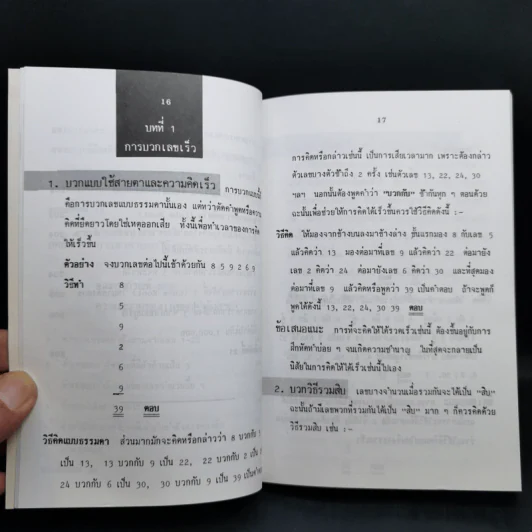 16
บทที่ 1
การบวกเลขเร็ว
1. บวกแบบใช้สายตาและความคิดเร็ว การบวกแบบนี้
คือการบวกเลขแบบธรรมดานั้นเอง แต่ทว่าตัดคำพูดหรือความ
คิดที่ยืดยาวโดยใช่เหตุออกเสีย ทั้งนี้เพื่อทำเวลาของการคิด
ให้เร็วขึ้น
ตัวอย่าง จงบวกเลขต่อไปนี้เข้าด้วยกัน 8 5 9 2 6 9
วิธีทำ 8
5
9
2
6
9
39 ตอบ
วิธีคิดแบบธรรมดา ส่วนมากมักจะคิดหรือกล่าวว่า 8 บวกกับ 5
เป็น 13, 13 บวกกับ 9 เป็น 22, 22 บวกกับ 2 เป็น
24 บวกกับ 6 เป็น 30, 30 บวกกับ 9 เป็น
17
การคิดหรือกล่าวเช่นนี้ เป็นการเสียเวลามาก เพราะต้องกล่าว
ตัวเลขบางตัวซ้ำถึง 2 ครั้ง เช่นตัวเลข 13, 22, 24, 30
ฯลฯ นอกนั้นต้องพูดคำว่า "บวกกับ" ซ้ำกันทุก ๆ ตอนด้วย
ฉะนั้นเพื่อช่วยให้การคิดได้เร็วขึ้นควรใช้วิธีคิดดังนี้ :-
วิธีคิด ให้มองจากข้างบนลงมาข้างล่าง ขั้นแรกมอง 8 กับเลข 5
แล้วคิดว่า 13 มองต่อมาที่เลข 9 แล้วคิดว่า 22 ต่อมายัง
เลข 2 คิดว่า 24 ต่อมายังเลข 6 คิดว่า 30 และที่สุดมอง
ต่อมาที่เลข 9 แล้วคิดหรือพูดว่า 39 เป็นคำตอบ ถ้าจะพูดก็
พูดได้ดังนี้ 13, 22, 24, 30 39 ตอบ
ข้อเสนอแนะ การที่จะคิดให้ได้รวดเร็วเช่นนี้ ต้องขึ้นอยู่กับการ
ฝึกหัดทำบ่อย ๆ จนเกิดความชำนาญ ในที่สุดจะกลายเป็น
นิสัยในการคิดให้ได้เร็วเช่นนี้ไปเอง
2. บวกวิธีรวมสิบ เลขบางจำนวนเมื่อรวมกันจะได้เป็น "สิบ"
ฉะนั้นถ้ามีเลขพวกที่รวมกันได้เป็น "สิบ" มาก ๆ ก็ควรคิดด้วย
วิธีรวมสิบ เช่น :-